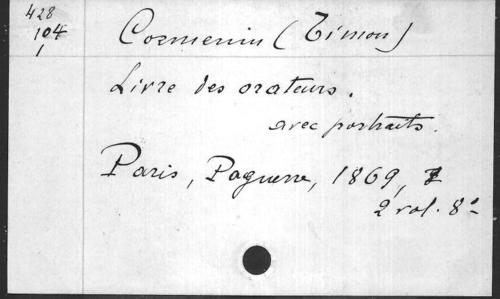 428
104
1
Cormenin (Timon)
Livre des orateurs.
avec portraits.
Paris, Pagnerre, 1869,
2 vol. 8º